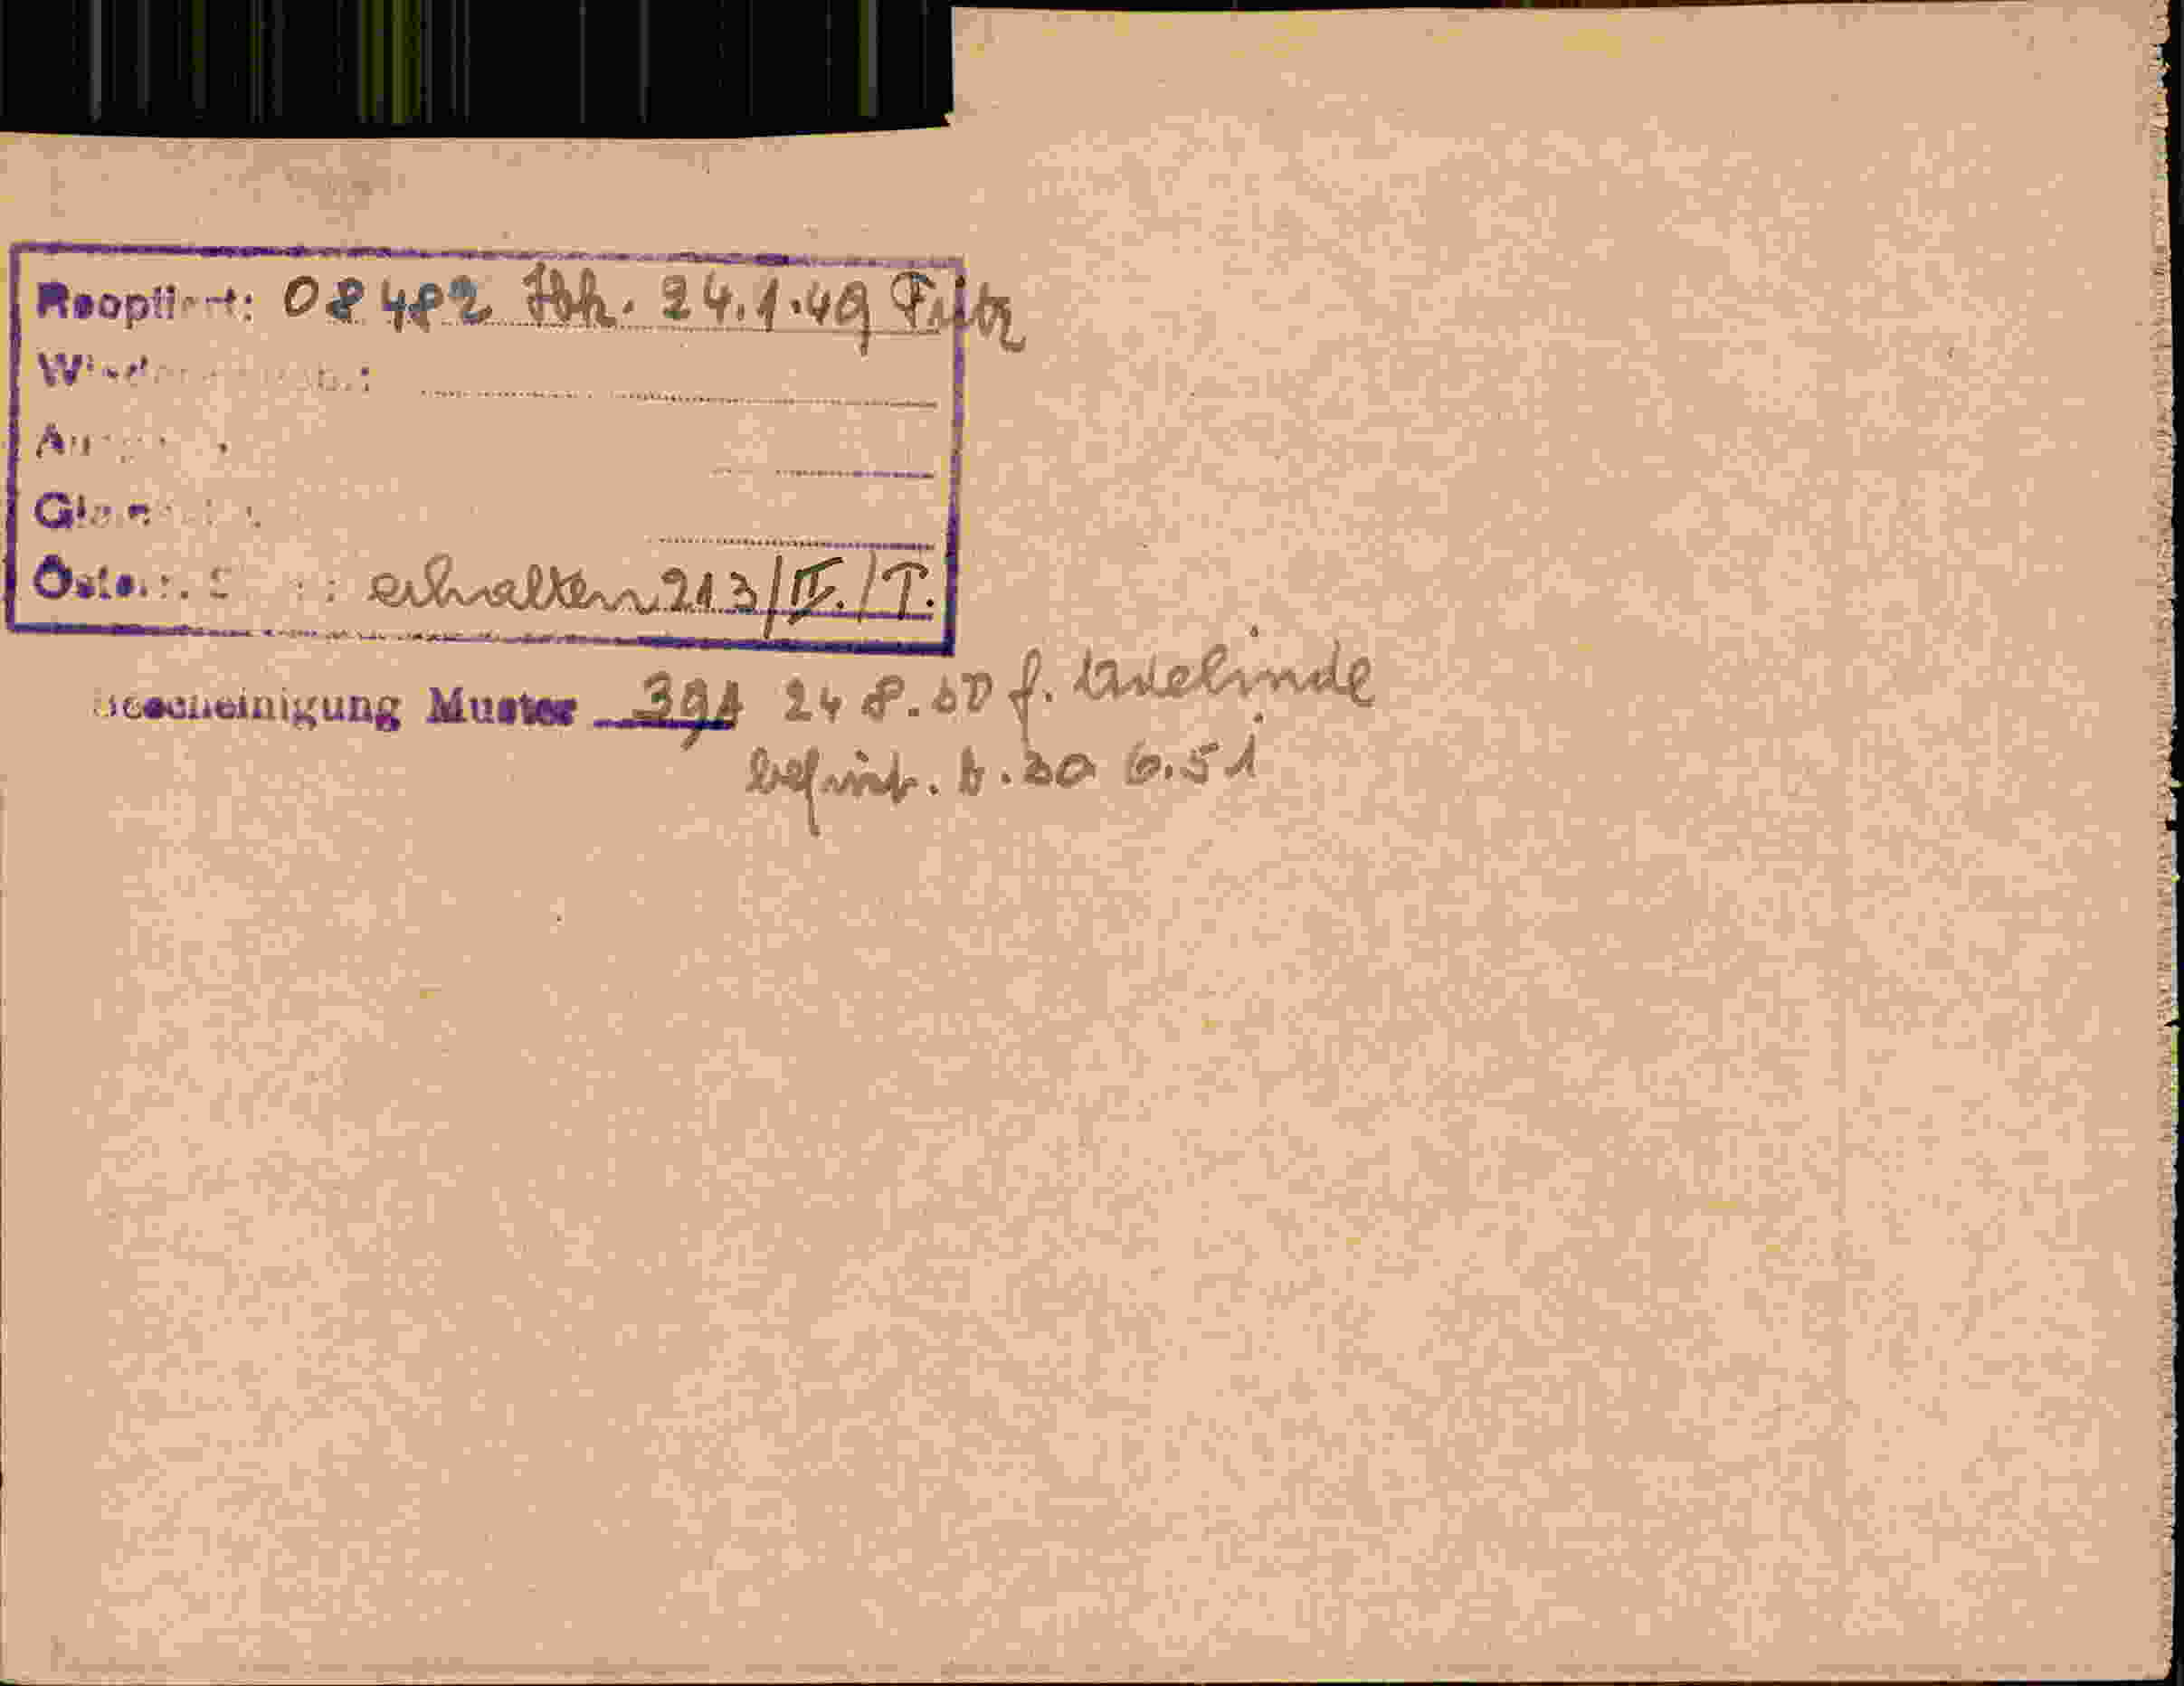 Reoptiert: 08482 Ibk. 24.1.49 Fritz
erhalten 213/IV./T.
Bescheinigung Muster 39A 24 8.50 f. Adelinde
befrist. b. 30 6.51